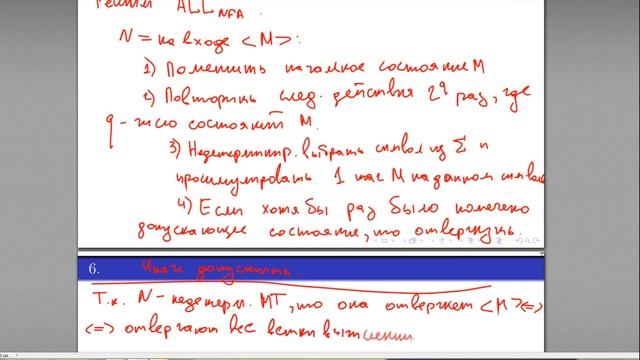 ALL_NFA.
N = на входе <M>:
1) Пометить начальное состояние M
2) Повторить след. действия 2^q раз, где
q - число состояний M.
3) Недетерминир. выбрать символ из Σ и
просимулировать 1 шаг M на данном символе
4) Если хотя бы раз было помечено
допускающее состояние, то отвергнуть.
6. Иначе допустить.
Т.к. N - недетерм. МТ, то она отвергнет <M> <=>
<=> отвергают все ветки вычислений